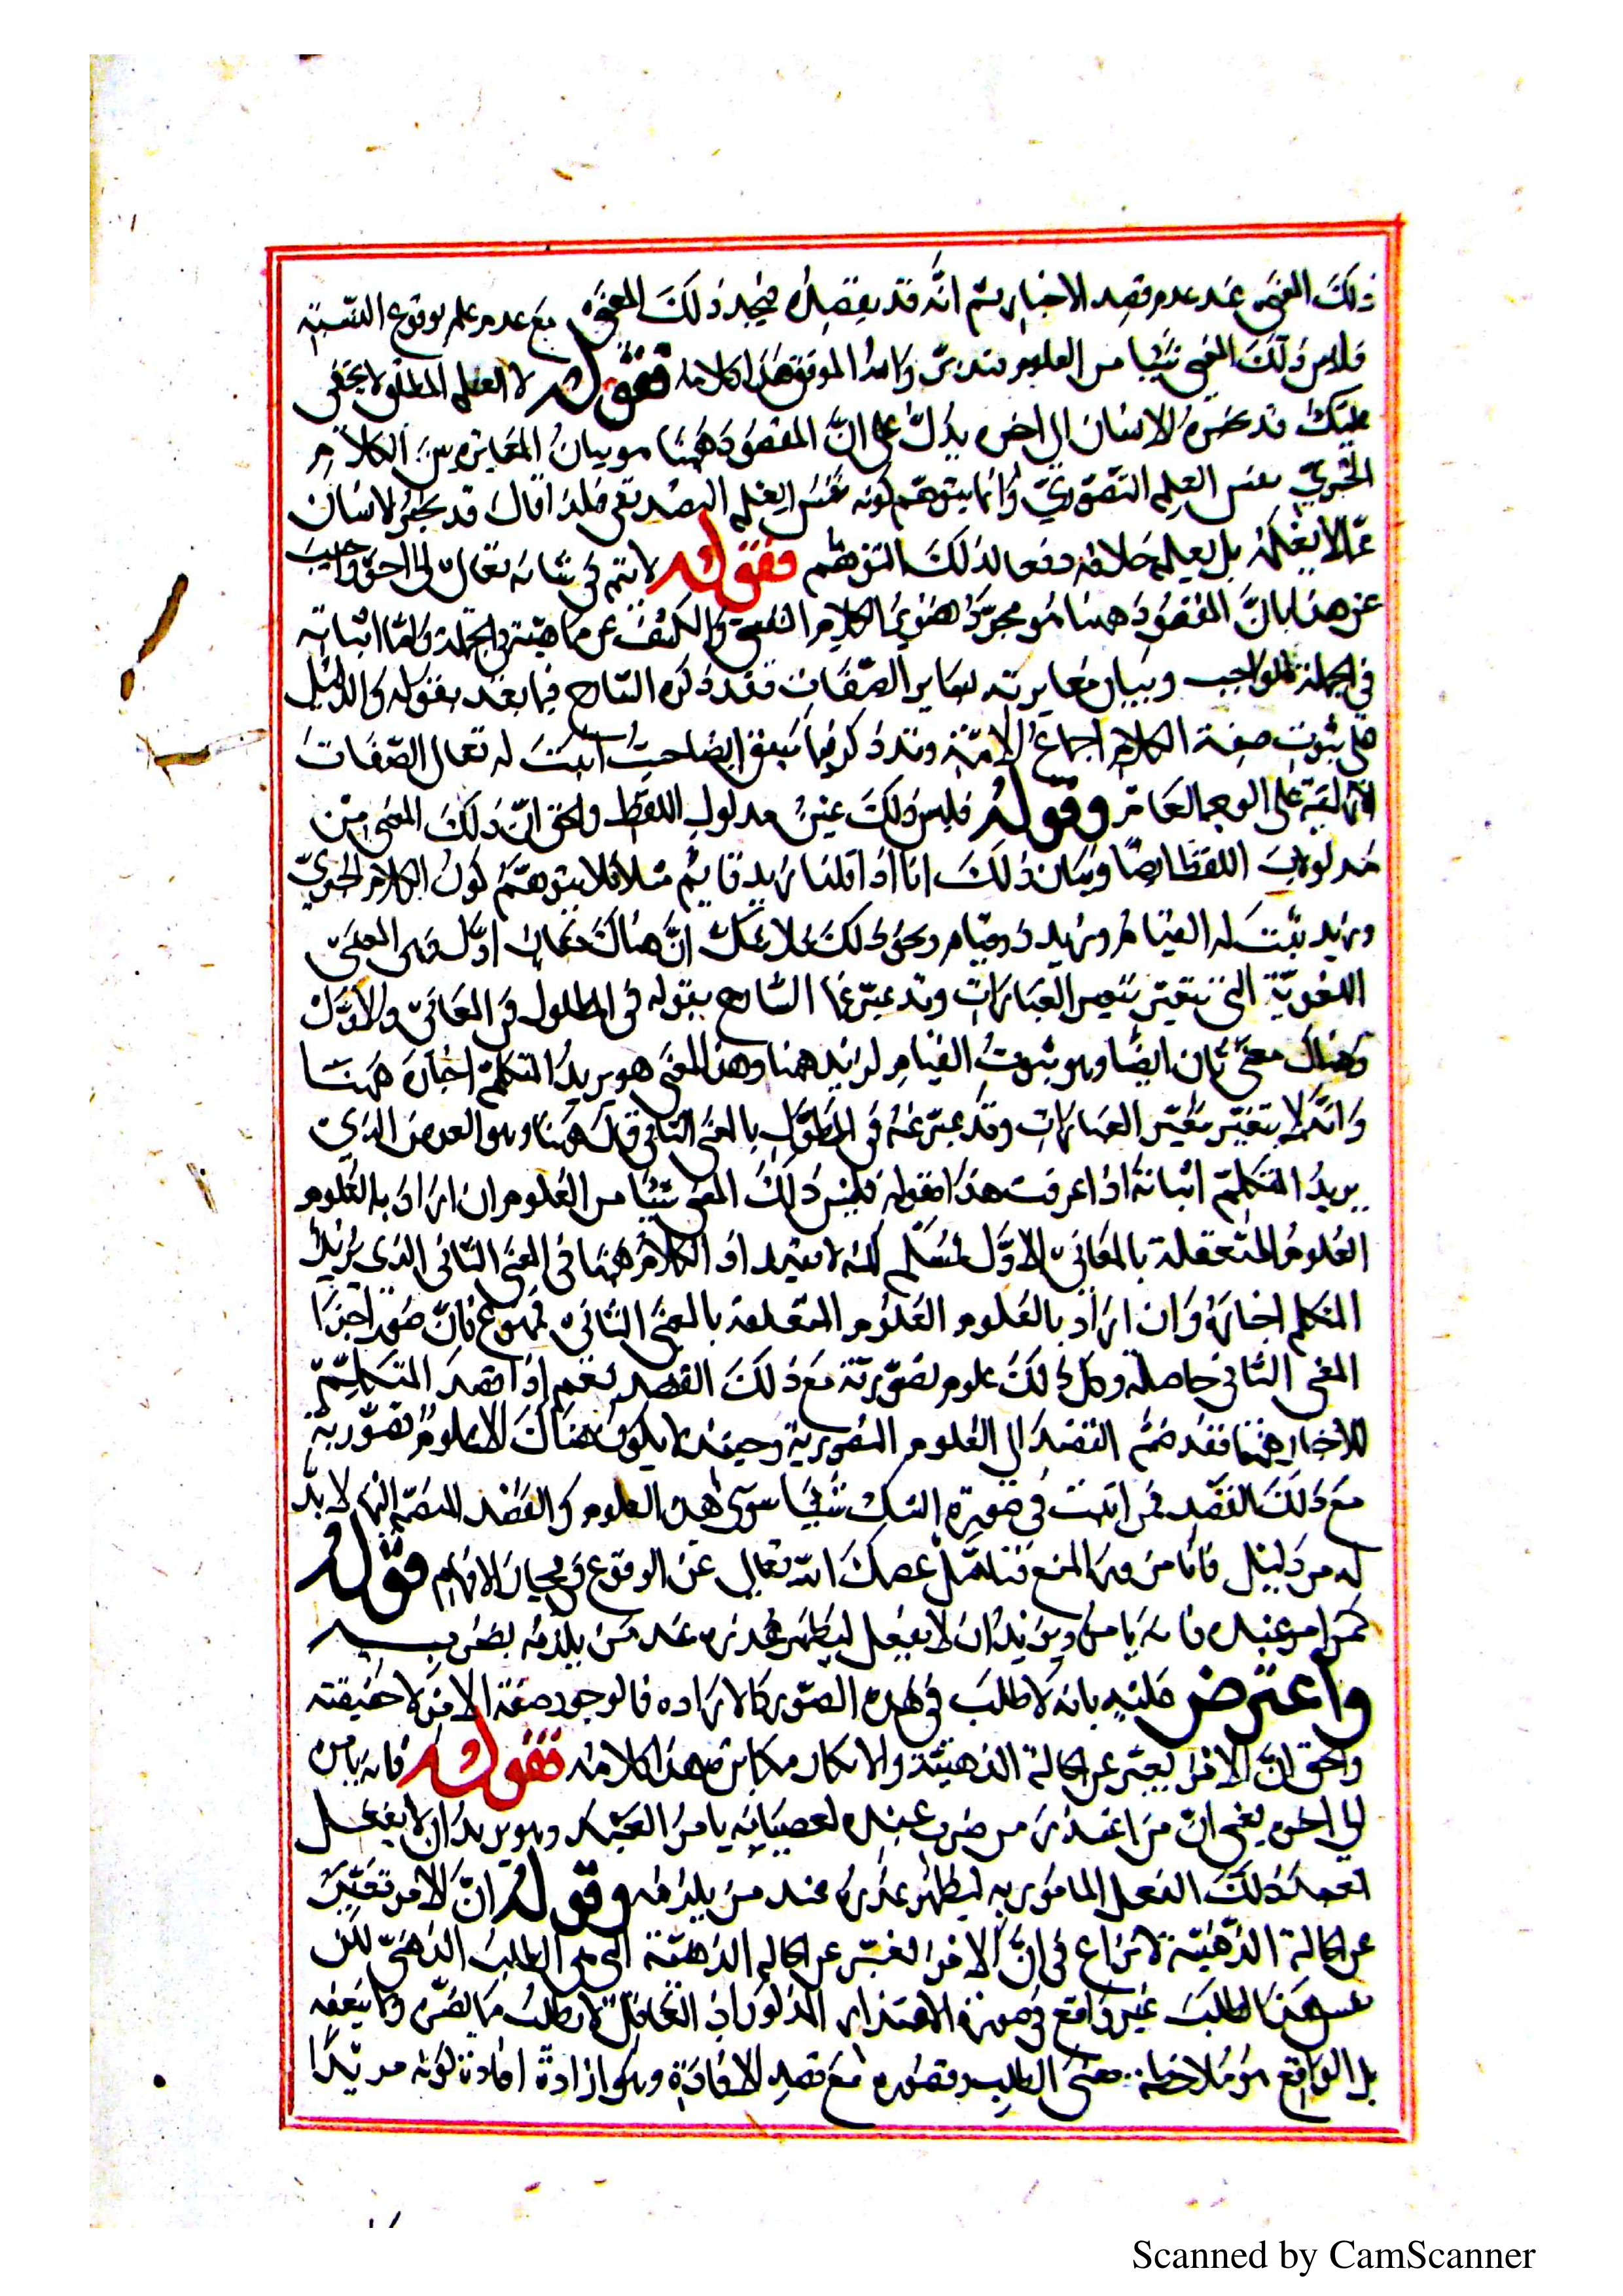 ذلك المعنى عند عدم قصد الاخبار ثم انه قد يقصده فيجد ذلك المعنى مع عدم علم بوقوع النسبة
فليس ذلك المعنى شيئا من العلوم فتدبر والله الموفق هذا كلامه فقوله لا العلم المطلق لا يخفى
عليك قد يخبر الانسان الى اخره يدل على ان المقصود ههنا هو بيان المغايرة بين الكلام
الخبري نفس العلم التصوري وانما يتوهم كونه نفس العلم التصديقي فلذا قال قد يخبر الانسان
عما لا يعلمه بل يعلم خلافه دفعا لذلك التوهم فقوله لا يتم في شانه تعالى الى اخره واجيب
عن هذا بان المقصود ههنا هو مجرد تصوير الكلام النفسي والكشف عن ماهيته في الجملة واما اثباته
في الجملة للواجب وبيان مغايرته لساير الصفات فقد ذكره الشارح فيما بعد بقوله والدليل
على ثبوت صفة الكلام اجماع الامة وقد ذكر فيما سبق ايضا حيث اثبت له تعالى الصفات
على الوجه العام وقوله فليس ذلك عين مدلول اللفظ والحق ان ذلك المعنى من
مدلولات اللفظ ايضا وبيان ذلك انا اذا قلنا زيد قايم مثلا فلا يتوهم كون الكلام الخبري
وزيد يثبت له القيام وزيد ذو قيام ونحو ذلك فلا شك ان هناك معان اول وهى المعانى
اللغوية التي تتغير بتغير العبارات وقد عبر عنها الشارح بقوله في المطول والاول
وهناك معنى ثان ايضا وهو ثبوت القيام لزيد ههنا وهذا المعنى هو يريد المتكلم اخباره ههنا
وانه لا يتغير بتغير العبارات وقد عبر عنه في المطول بالمعنى الثاني ههنا وهو الغرض الذي
يريد المتكلم اثباته اذا عرفت هذا فقوله فليس ذلك المعنى شيئا من العلوم ان اراد بالعلوم
العلوم المتعلقة بالمعاني الاول لمسلم لكنه لا يفيد اذ الكلام ههنا في المعنى الثاني الذى يريد
المتكلم اخباره وان اراد بالعلوم العلوم المتعلقة بالمعنى الثاني فممنوع فان صور اجزا
المعنى الثاني حاصلة وكل ذلك علوم تصورية مع ذلك القصد نعم اذا قصد المتكلم
للاخبار ههنا فقد ضم القصد الى العلوم التصورية وحينئذ لا يكون هناك الا علوم تصورية
مع ذلك القصد فمن اثبت في صورة الشك شيئا سوى هذه العلوم والقصد المنضم اليها لا بد
له من دليل فانا من وراء المنع فتامل عصمك الله تعالى عن الوقوع في الاوهام قوله
كمن امر عبده فانه يامره ويريد ان لا يفعل ليظهر عذره عند من يلومه بضربه
واعترض عليه بانه لا طلب في هذه الصورة كالارادة فالوجود صيغة الامر لا حقيقته
والحق ان الامر يعبر عن الحالة الذهنية والانكار مكابرة هذا كلامه فقوله فانه يامره
الى اخره يعنى ان من اعتذر من ضرب عبده لعصيانه يامر العبد وهو يريد ان لا يفعل
العبد ذلك الفعل المامور به ليظهر عذره عند من يلومه وقوله ان الامر تعبير
عن الحالة الذهنية لا نزاع في ان الامر تعبير عن الحالة الذهنية التى هى الطلب الذهني لكن
نفس هذا الطلب غير واقع في صورة الاعتذار المذكور اذ العاقل لا يطلب ما يضره ولا ينفعه
بل الواقع هو ملاحظة معنى الطلب وتصوره مع قصد الافادة وهو ارادة افادة كونه مريدا
Scanned by CamScanner